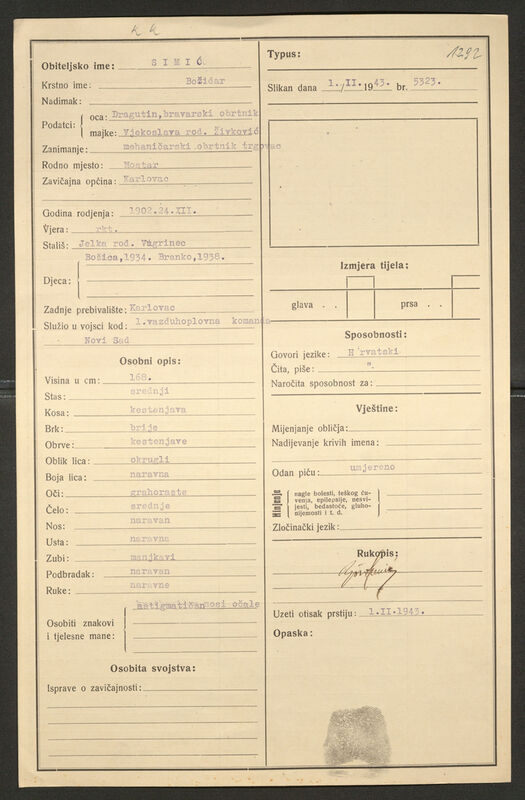 k k
1292
Obiteljsko ime: SIMIĆ
Krstno ime: Božidar
Nadimak:
Podatci: oca: Dragutin, bravarski obrtnik
majke: Vjekoslava rod. Živković
Zanimanje: mehaničarski obrtnik trgovac
Rodno mjesto: Mostar
Zavičajna općina: Karlovac
Godina rodjenja: 1902.24.XII.
Vjera: rkt.
Stališ: Jelka rod. Vagrinec
Božica,1934. Branko,1938.
Djeca:
Zadnje prebivalište: Karlovac
Služio u vojsci kod: 1.vazduhoplovna komanda
Novi Sad
Osobni opis:
Visina u cm: 168.
Stas: srednji
Kosa: kestenjava
Brk: brije
Obrve: kestenjave
Oblik lica: okrugli
Boja lica: naravna
Oči: grahoraste
Čelo: srednje
Nos: naravan
Usta: naravna
Zubi: manjkavi
Podbradak: naravan
Ruke: naravne
Osobiti znakovi i tjelesne mane: astigmatičan nosi očale
Osobita svojstva:
Isprave o zavičajnosti:
Typus:
Slikan dana 1./II.1943. br. 5323.
Izmjera tijela:
glava . . prsa . .
Sposobnosti:
Govori jezike: Hrvatski
Čita, piše: ".
Naročita sposobnost za:
Vještine:
Mijenjanje obličja:
Nadijevanje krivih imena:
Odan piću: umjereno
Himjenje
nagle bolesti, teškog ću-
venja, epilepsije, nesvi-
jesti, bedastoće, gluho-
nijemosti i t. d.
Zločinački jezik:
Rukopis:
Uzeti otisak prstiju: 1.II.1943.
Opaska: